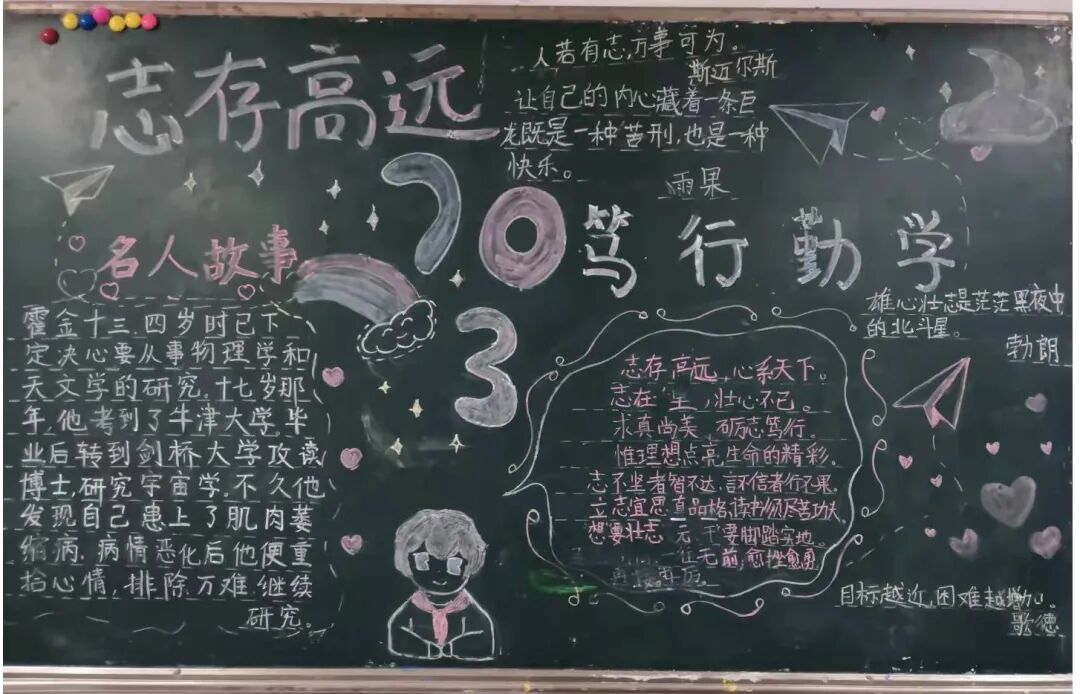 志存高远
人若有志,万事可为。
斯迈尔斯
让自己的内心藏着一条巨
龙既是一种苦刑,也是一种
快乐。
雨果
703
笃行勤学
名人故事
霍金十三、四岁时已下
定决心要从事物理学和
天文学的研究,十七岁那
年,他考到了牛津大学毕
业后转到剑桥大学攻读
博士,研究宇宙学,不久他
发现自己患上了肌肉萎
缩病,病情恶化后他便重
拾心情,排除万难,继续
研究。
雄心壮志是茫茫黑夜中
的北斗星。
勃朗
志存高远,心系天下。
志在 ,壮心不已。
求真尚美,砺志笃行。
惟理想点亮生命的精彩。
志不坚者智不达,言不信者行不果。
立志宜思真品格,读书须尽苦功夫。
想要壮志 要脚踏实地。
一往无前,愈挫愈勇
再接再厉。
目标越近,困难越增加。
歌德